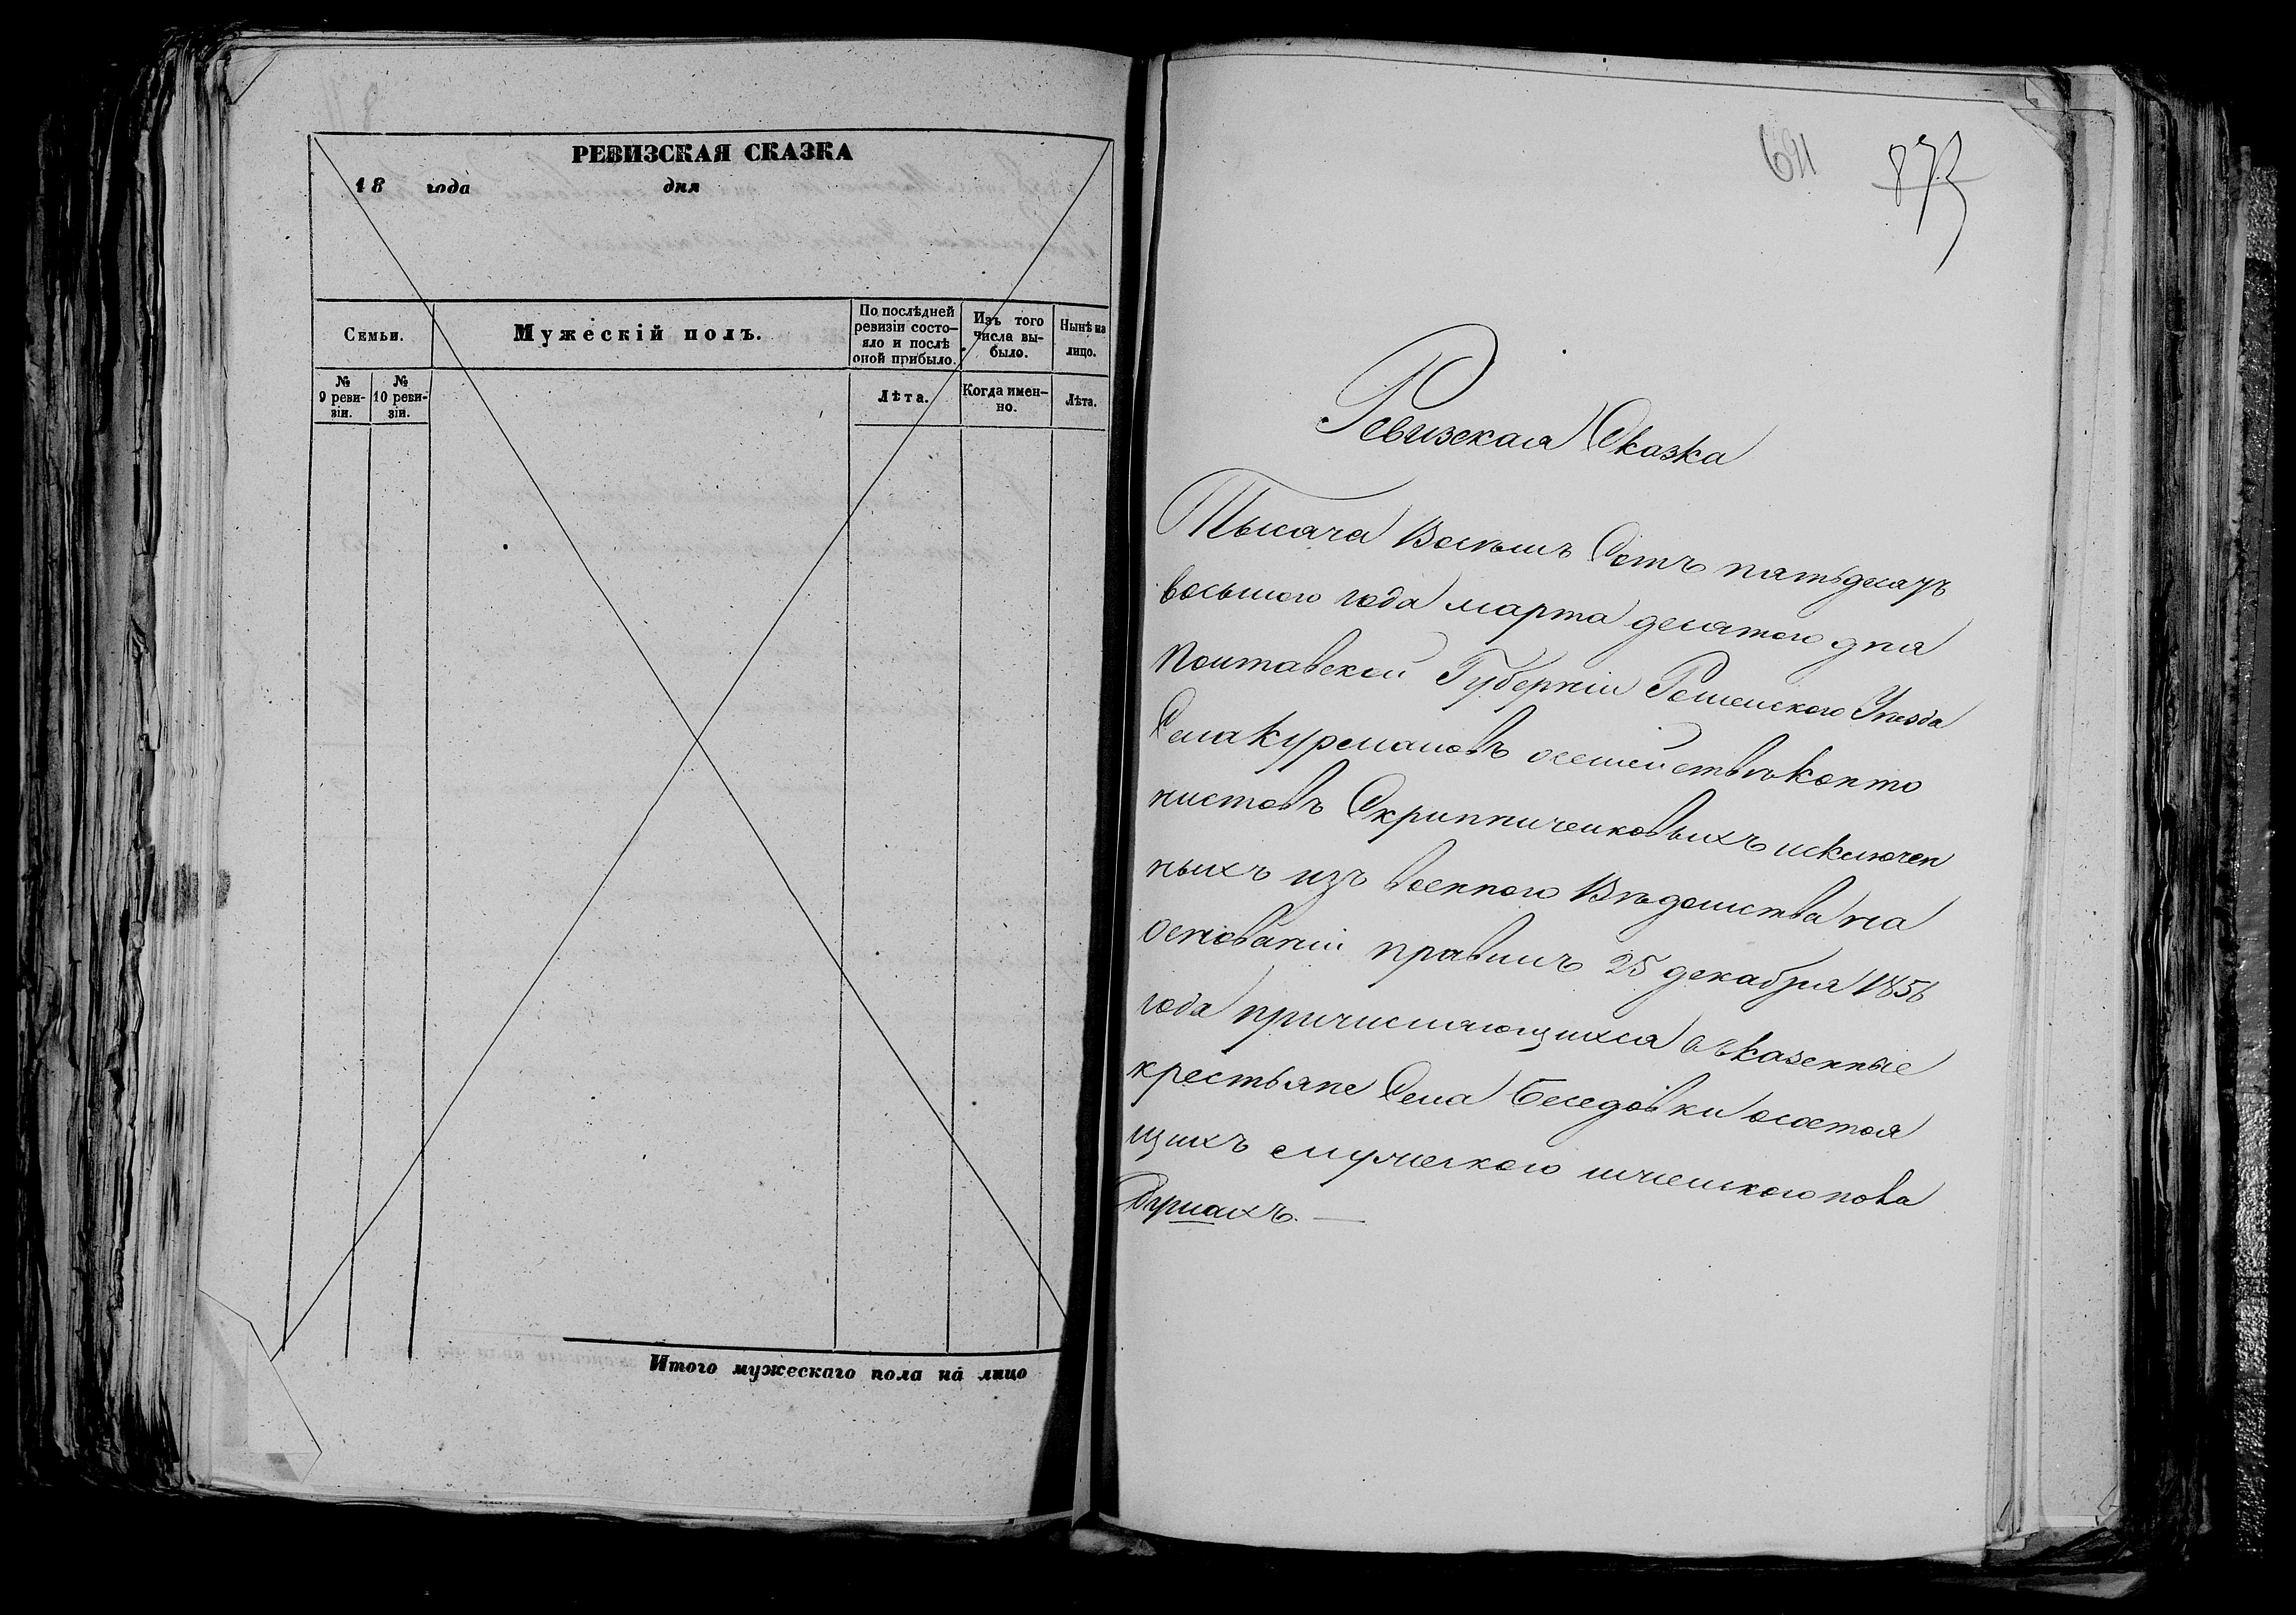 РЕВИЗСКАЯ СКАЗКА
18 года дня
Семьи.
Мужескій полъ.
По послѣдней ревизіи состо-
яло и послѣ
оной прибыло.
Изъ того
числа вы-
было.
Нынѣ на
лицо.
№
9 реви-
зіи.
№
10 реви-
зіи.
Лѣта.
Когда имен-
но.
Лѣта.
Итого мужескаго пола на лицо
691 873
Ревизская Сказка
Тысяча Восемь Сотъ пятьдесятъ
восьмого года марта десятого дня
Полтавской Губерніи Роменского Уѣзда
Села Курмановъ осемействѣ Канто
нистовъ Скрипниченковыхъ исключен
ныхъ изъ военного Вѣдомства на
основаніи правилъ 25 декабря 1856
года причисляющихся въ казенные
крестьяне Села Беседовки осостоя
щихъ мужеского иженского пола
Душахъ. —